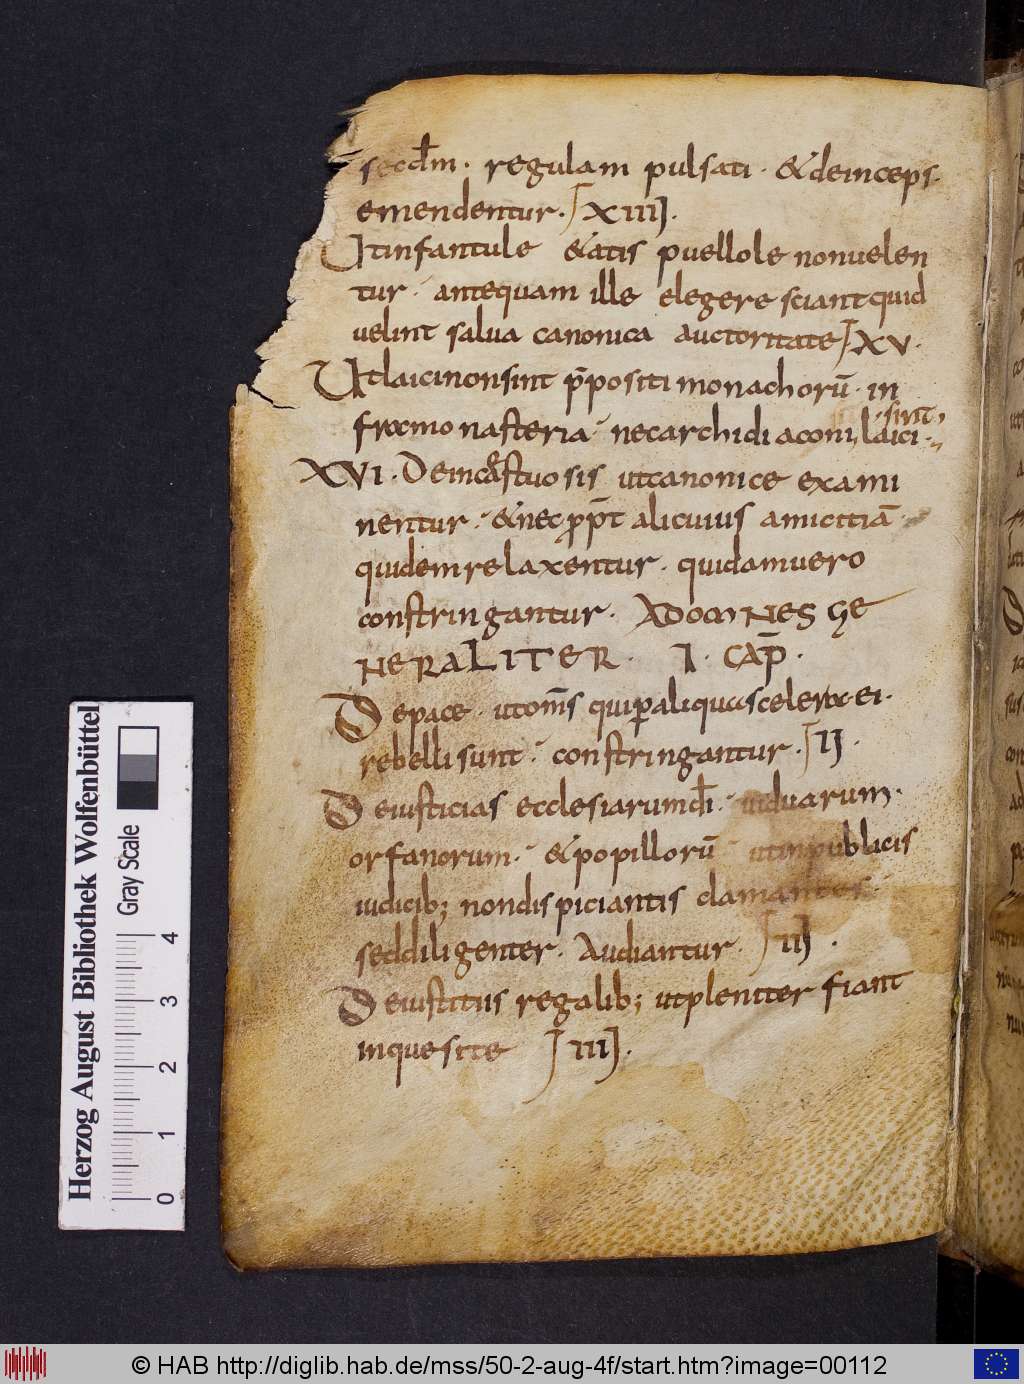 secdm̄· regulam pulsati· & deinceps·
emendentur·/ XIII].
Ut infantule &atis puellole nonuelen
tur· antequam ille elegere sciant quid
uelint salua canonica auctoritate / XV·
Ut laici non sint p̄positi monachorū· in
fra monasteria· nec archidiaconi laici·
sint·
XVI· De incestuosis ut canonice exami
nentur· & nec ꝓpt̄ alicuius amicitiā
quidem relaxentur· quidam uero
constringantur· AD OMNES GE
NERALITER· I· CAP̄·
De pace· ut om̄s qui ꝑ aliqua scelera· ei·
rebelli sunt· constringantur· / IJ·
De iusticias ecclesiarum dī· uiduarum·
orfanorum· & popillorū· ut in publicis
iudicib; non dispiciantis clamantes·
sed diligenter· Audiantur· / II]·
De iustitiis regalib; ut pleniter fiant
inquesite / III]·
Herzog August Bibliothek Wolfenbüttel
Gray Scale
0 1 2 3 4
© HAB http://diglib.hab.de/mss/50-2-aug-4f/start.htm?image=00112